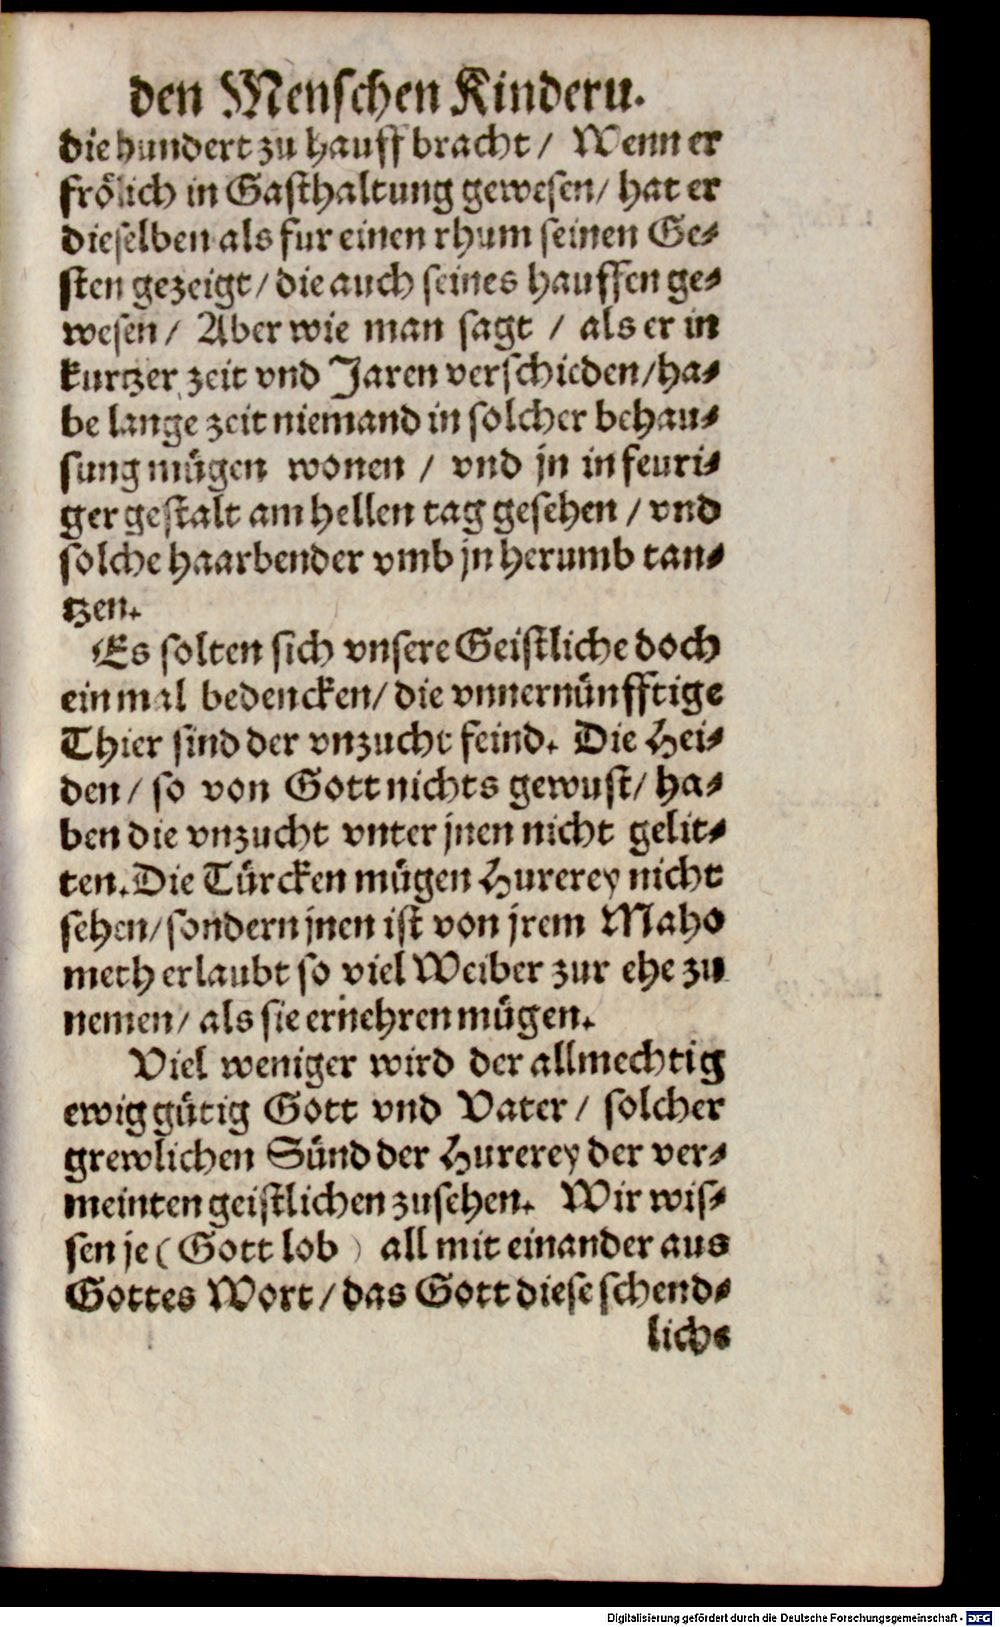 den Menschen Kinderu.
die hundert zu hauff bracht / Wenn er
frölich in Gasthaltung gewesen / hat er
dieselben als fur einen rhum seinen Ge⸗
sten gezeigt / die auch seines hauffen ge⸗
wesen / Aber wie man sagt / als er in
kurtzer zeit vnd Jaren verschieden / ha⸗
be lange zeit niemand in solcher behau⸗
sung mügen wonen / vnd jn in feuri⸗
ger gestalt am hellen tag gesehen / vnd
solche haarbender vmb jn herumb tan⸗
tzen.
Es solten sich vnsere Geistliche doch
ein mal bedencken / die vnnernünfftige
Thier sind der vnzucht feind. Die Hei⸗
den / so von Gott nichts gewust / ha⸗
ben die vnzucht vnter jnen nicht gelit⸗
ten. Die Türcken mügen Hurerey nicht
sehen / sondern jnen ist von jrem Maho
meth erlaubt so viel Weiber zur ehe zu
nemen / als sie ernehren mügen.
Viel weniger wird der allmechtig
ewig gütig Gott vnd Vater / solcher
grewlichen Sünd der Hurerey der ver⸗
meinten geistlichen zusehen. Wir wis⸗
sen je ( Gott lob ) all mit einander aus
Gottes Wort / das Gott diese schend⸗
lichs
Digitalisierung gefördert durch die Deutsche Forschungsgemeinschaft - DFG